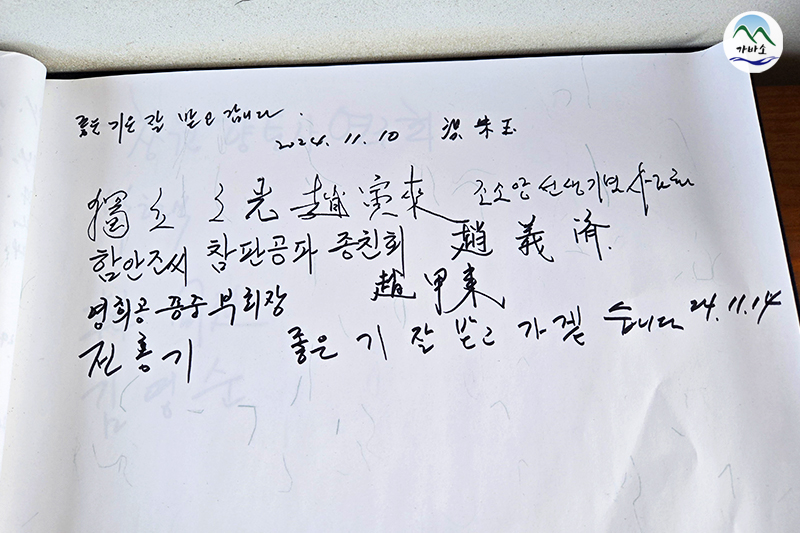 가바소
좋은 기운 잘 받고 갑니다.
2024. 11. 10 梁 朱 玉
獨立之光 趙寅來 조소앙선생기념사업회
함안조씨 참판공파 종친회 趙 義 済.
명희공 종중 부회장 趙 甲東
전홍기 좋은 기 잘 받고 가겠습니다 24. 11. 14